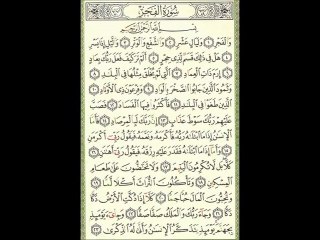 سُورَةُ الفَجْرِ
بِسْمِ اللَّهِ الرَّحْمَٰنِ الرَّحِيمِ
وَالْفَجْرِ ١ وَلَيَالٍ عَشْرٍ ٢ وَالشَّفْعِ وَالْوَتْرِ ٣ وَاللَّيْلِ إِذَا يَسْرِ
٤ هَلْ فِي ذَٰلِكَ قَسَمٌ لِذِي حِجْرٍ ٥ أَلَمْ تَرَ كَيْفَ فَعَلَ رَبُّكَ بِعَادٍ
٦ إِرَمَ ذَاتِ الْعِمَادِ ٧ الَّتِي لَمْ يُخْلَقْ مِثْلُهَا فِي الْبِلَادِ ٨
وَثَمُودَ الَّذِينَ جَابُوا الصَّخْرَ بِالْوَادِ ٩ وَفِرْعَوْنَ ذِي الْأَوْتَادِ ١٠
الَّذِينَ طَغَوْا فِي الْبِلَادِ ١١ فَأَكْثَرُوا فِيهَا الْفَسَادَ ١٢ فَصَبَّ
عَلَيْهِمْ رَبُّكَ سَوْطَ عَذَابٍ ١٣ إِنَّ رَبَّكَ لَبِالْمِرْصَادِ ١٤ فَأَمَّا
الْإِنسَانُ إِذَا مَا ابْتَلَاهُ رَبُّهُ فَأَكْرَمَهُ وَنَعَّمَهُ فَيَقُولُ رَبِّي أَكْرَمَنِ
١٥ وَأَمَّا إِذَا مَا ابْتَلَاهُ فَقَدَرَ عَلَيْهِ رِزْقَهُ فَيَقُولُ رَبِّي أَهَانَنِ ١٦
كَلَّا بَل لَّا تُكْرِمُونَ الْيَتِيمَ ١٧ وَلَا تَحَاضُّونَ عَلَىٰ طَعَامِ
الْمِسْكِينِ ١٨ وَتَأْكُلُونَ التُّرَاثَ أَكْلًا لَّمًّا ١٩
وَتُحِبُّونَ الْمَالَ حُبًّا جَمًّا ٢٠ كَلَّا إِذَا دُكَّتِ الْأَرْضُ دَكًّا
دَكًّا ٢١ وَجَاءَ رَبُّكَ وَالْمَلَكُ صَفًّا صَفًّا ٢٢ وَجِيءَ يَوْمَئِذٍ
بِجَهَنَّمَ يَوْمَئِذٍ يَتَذَكَّرُ الْإِنسَانُ وَأَنَّىٰ لَهُ الذِّكْرَىٰ ٢٣